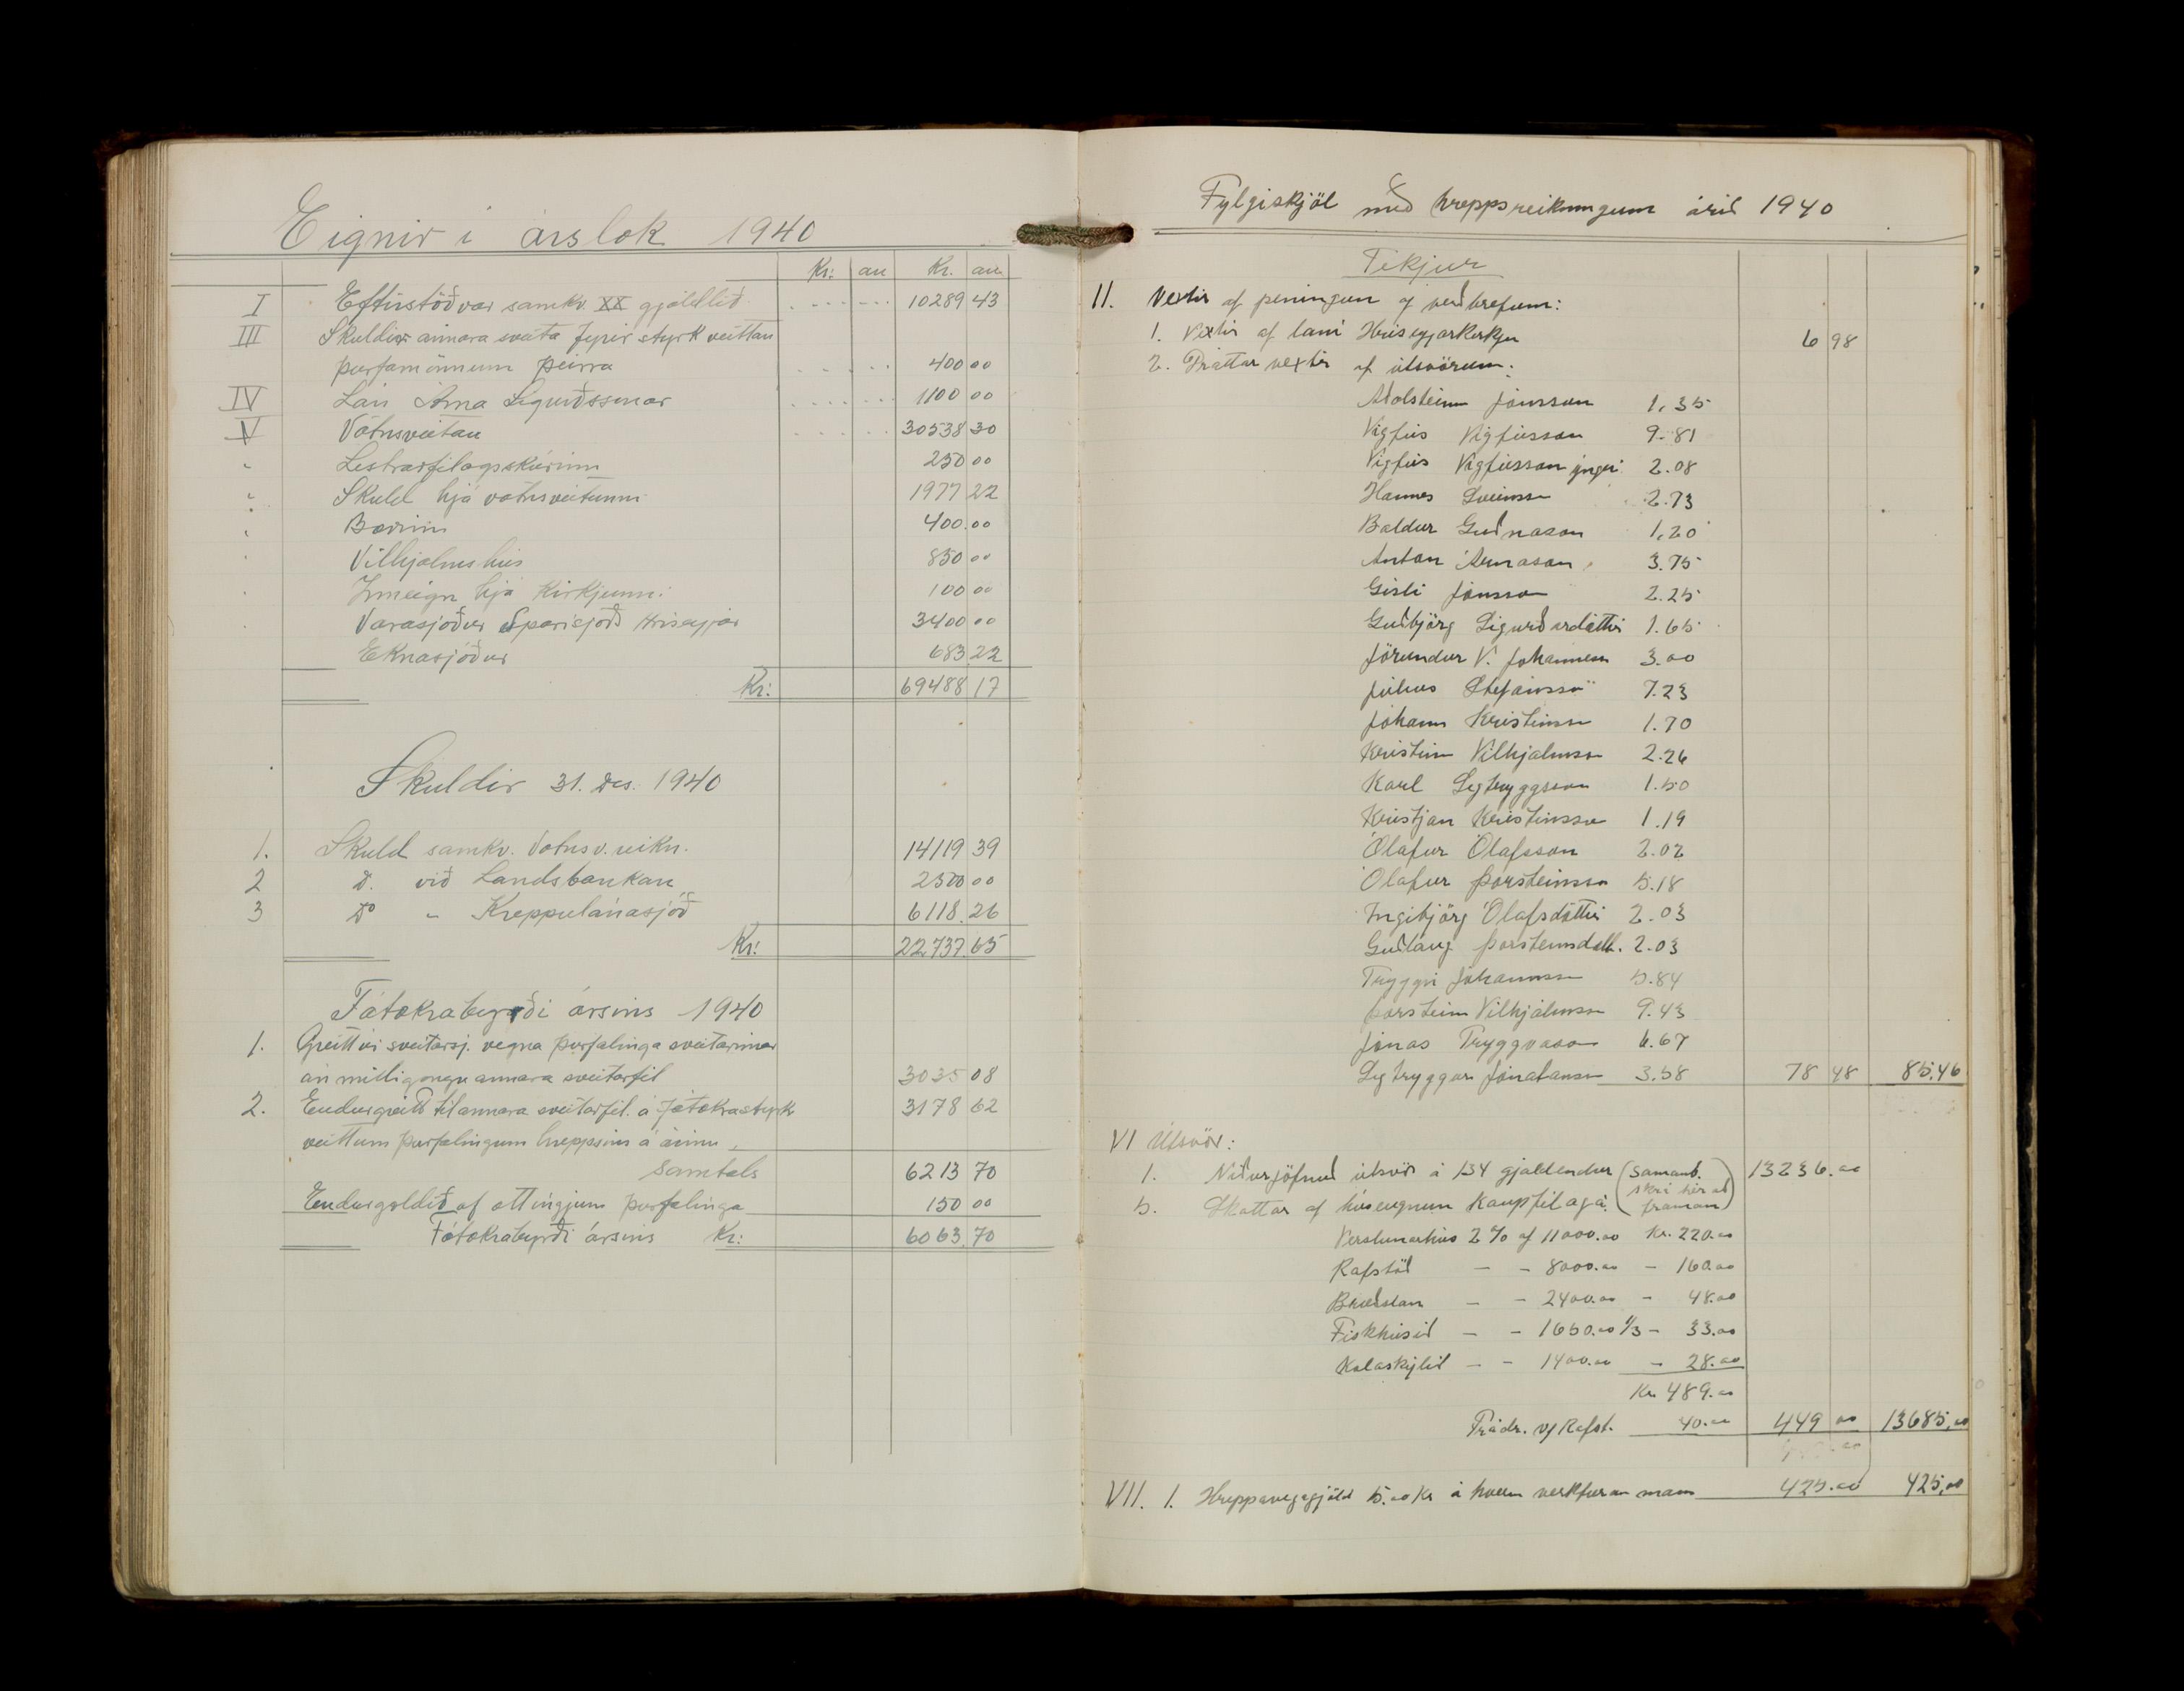 Eignir í árslok 1940
Kr: au Kr. au
I Eftirstöðvar samkv. XX gjaldlið 10289 43
III Skuldir annara sveita fyrir styrk veittan
þurfamönnum þeirra 400 00
IV Lán Árna Sigurðssonar 1100 00
V Vatnsveitan 30538 30
" Lestrarfélagsskúrinn 250 00
" Skuld hjá vatnsveitunni 1977 22
" Bærinn 400.00
" Vilhjálmshús 850 00
" Inneign hjá Kirkjunni 100 00
" Varasjóður Sparisjóðs Hríseyjar 3400 00
Eknasjóður 683.22
Kr: 69488 17
Skuldir 31. des. 1940
1. Skuld samkv. Vatnsv. reikn. 14119 39
2 D. við Landsbankan 2500 00
3 Do " Kreppulánasjóð 6118.26
Kr: 22.737.65
Fátækrabyrði ársins 1940
1. Greitt úr sveitarsj. vegna þurfalinga sveitarinnar
án milligöngu annara sveitarfél 3035 08
2. Endurgreitt til annara sveitarfél. á fátækrastyrk 3178 62
veittum þurfalingum hreppsins á árinu
Samtals 6213 70
Endurgoldið af ættingjum þurfalinga 150 00
Fátækrabyrði ársins Kr: 6063.70
Fylgiskjöl með hreppsreikningum árið 1940
Tekjur
II. Vextir af peningum og verðbrefum:
1. Vextir af láni Hríseyjarkirkju 6 98
2. Dráttarvextir af útsvörum:
Aðalsteinn Jónsson 1,35
Vigfús Vigfússon 9.81
Vigfús Vigfússon yngri 2.08
Hannes Sveinsson 2.73
Baldur Guðnason 1,20
Anton Árnason 3.75
Gísli Jónsson 2.25
Guðbjörg Sigurðardóttir 1.65
Jörundur V. Jóhannesson 3.00
Júlíus Stefánsson 7.23
Jóhann Kristinsson 1.70
Kristinn Vilhjálmsson 2.26
Karl Sigtryggsson 1.50
Kristján Kristinsson 1.19
Ólafur Ólafsson 2.02
Ólafur Þorsteinsson 5.18
Ingibjörg Ólafsdóttir 2.03
Guðlaug Þorsteinsdótt. 2.03
Tryggvi Jóhannsson 5.84
Þorsteinn Vilhjálmsson 9.43
Jónas Tryggvason 6.67
Sigtryggur Jónatansson 3.58 78 48 85.46
VI Útsvör:
1. Niðurjöfnuð útsvör á 134 gjaldendur (samanb. skrá hér að framan) 13236.00
5. Skattar af húseignum Kaupfélaga:
Verslunarhús 2% af 11000.00 Kr. 220.00
Rafstöð — - 8000.00 - 160.00
Bræðslan — - 2400.00 - 48.00
Fiskhúsið — - 1650.00 1/3 - 33.00
Kolaskýlið — - 1400.00 - 28.00
Kr 489.00
Frádr. v/ Rafst. 40.00 449 00 13685,00
VII. 1. Hreppavegagjöld 5.00 Kr á hvern verkfæran mann 425.00 425,00